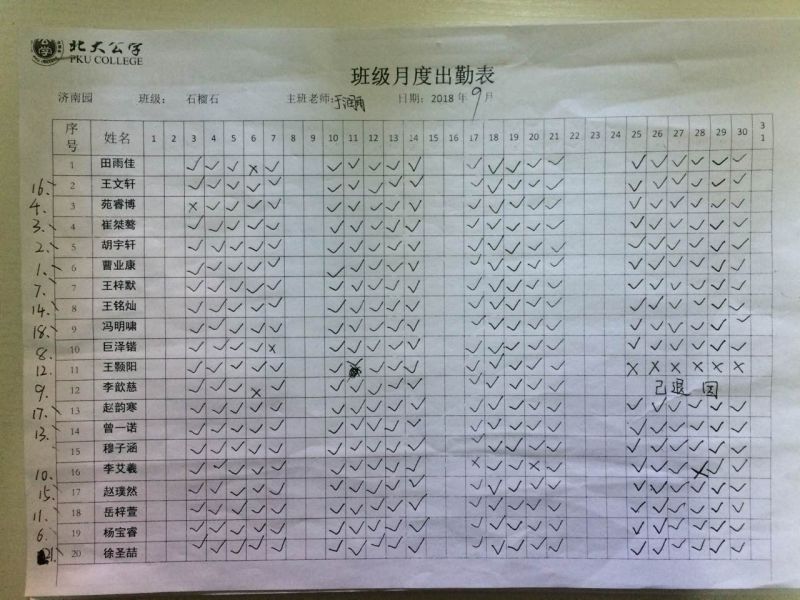 北大公学
PKU COLLEGE
班级月度出勤表
济南园 班级: 石榴石 主班老师: 日期: 2018年9月
序号 姓名 1 2 3 4 5 6 7 8 9 10 11 12 13 14 15 16 17 18 19 20 21 22 23 24 25 26 27 28 29 30 31
1 田雨佳 ✓ ✓ ✓ × ✓ ✓ ✓ ✓ ✓ ✓ ✓ ✓ ✓ ✓ ✓ ✓ ✓ ✓ ✓ ✓ ✓
16. 2 王文轩 ✓ ✓ ✓ ✓ ✓ ✓ ✓ ✓ ✓ ✓ ✓ ✓ ✓ ✓ ✓ ✓ ✓ ✓ ✓ ✓ ✓
4. 3 苑睿博 × ✓ ✓ ✓ ✓ ✓ ✓ ✓ ✓ ✓ ✓ ✓ ✓ ✓ ✓ ✓ ✓ ✓ ✓ ✓ ✓
3. 4 崔桀骜 ✓ ✓ ✓ ✓ ✓ ✓ ✓ ✓ ✓ ✓ ✓ ✓ ✓ ✓ ✓ ✓ ✓ ✓ ✓ ✓ ✓
2. 5 胡宇轩 ✓ ✓ ✓ ✓ ✓ ✓ ✓ ✓ ✓ ✓ ✓ ✓ ✓ ✓ ✓ ✓ ✓ ✓ ✓ ✓ ✓
1. 6 曹业康 ✓ ✓ ✓ ✓ ✓ ✓ ✓ ✓ ✓ ✓ ✓ ✓ ✓ ✓ ✓ ✓ ✓ ✓ ✓ ✓ ✓
7. 7 王梓默 ✓ ✓ ✓ ✓ ✓ ✓ ✓ ✓ ✓ ✓ ✓ ✓ ✓ ✓ ✓ ✓ ✓ ✓ ✓ ✓ ✓
14. 8 王铭灿 ✓ ✓ ✓ ✓ ✓ ✓ ✓ ✓ ✓ ✓ ✓ ✓ ✓ ✓ ✓ ✓ ✓ ✓ ✓ ✓ ✓
18. 9 冯明啸 ✓ ✓ ✓ ✓ ✓ ✓ ✓ ✓ ✓ ✓ ✓ ✓ ✓ ✓ ✓ ✓ ✓ ✓ ✓ ✓ ✓
8. 10 巨泽锴 ✓ ✓ ✓ ✓ × ✓ ✓ ✓ ✓ ✓ ✓ ✓ ✓ ✓ ✓ ✓ ✓ ✓ ✓ ✓ ✓
12. 11 王颢阳 ✓ ✓ ✓ ✓ ✓ ✓ ✓ ✓ ✓ ✓ ✓ ✓ ✓ ✓ × × × × × ×
9. 12 李歆慈 ✓ ✓ ✓ × ✓ ✓ ✓ ✓ ✓ ✓ ✓ ✓ ✓ ✓ ✓ 已退园
17. 13 赵韵寒 ✓ ✓ ✓ ✓ ✓ ✓ ✓ ✓ ✓ ✓ ✓ ✓ ✓ ✓ ✓ ✓ ✓ ✓ ✓ ✓ ✓
13. 14 曾一诺 ✓ ✓ ✓ ✓ ✓ ✓ ✓ ✓ ✓ ✓ ✓ ✓ ✓ ✓ ✓ ✓ ✓ ✓ ✓ ✓ ✓
15 穆子涵 ✓ ✓ ✓ ✓ ✓ ✓ ✓ ✓ ✓ ✓ ✓ ✓ ✓ ✓ ✓ ✓ ✓ ✓ ✓ ✓
10. 16 李艾羲 ✓ ✓ ✓ ✓ ✓ ✓ ✓ ✓ ✓ ✓ × ✓ ✓ × ✓ ✓ ✓ ✓ × ✓ ✓
15. 17 赵璞然 ✓ ✓ ✓ ✓ ✓ ✓ ✓ ✓ ✓ ✓ ✓ ✓ ✓ ✓ ✓ ✓ ✓ ✓ ✓ ✓ ✓
11. 18 岳梓萱 ✓ ✓ ✓ ✓ ✓ ✓ ✓ ✓ ✓ ✓ ✓ ✓ ✓ ✓ ✓ ✓ ✓ ✓ ✓ ✓ ✓
6. 19 杨宝睿 ✓ ✓ ✓ ✓ ✓ ✓ ✓ ✓ ✓ ✓ ✓ ✓ ✓ ✓ ✓ ✓ ✓ ✓ ✓ ✓ ✓
21. 20 徐圣喆 ✓ ✓ ✓ ✓ ✓ ✓ ✓ ✓ ✓ ✓ ✓ ✓ ✓ ✓ ✓ ✓ ✓ ✓ ✓ ✓ ✓